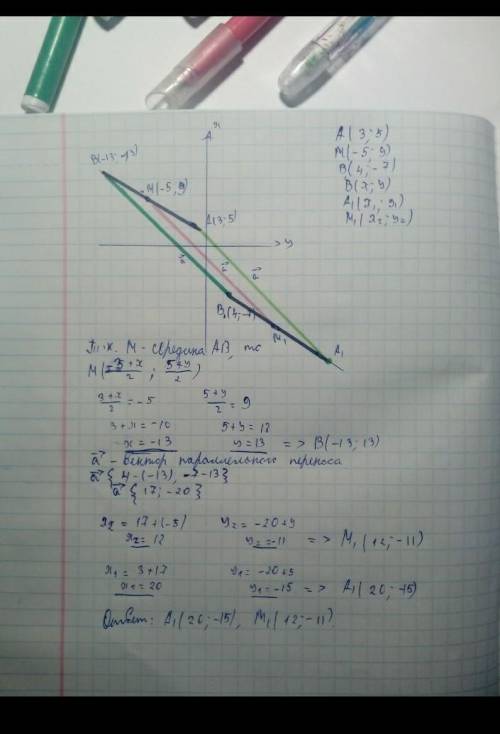 A(3; 5)
M(-5; 9)
B(4; -7)
B(x; y)
A₁(x₁; y₁)
M₁(x₂; y₂)
B(-13; -13)
M(-5, 9)
A(3; 5)
y
a⃗
a⃗
a⃗
B₁(4; -7)
M₁
A₁
Т.к. M - середина AB, то
M(3+x/2 ; 5+y/2)
3+x/2 = -5 5+y/2 = 9
3+x = -10 5+y = 18
x = -13 y = 13 => B(-13; 13)
a⃗ - вектор параллельного переноса
a⃗ {4-(-13); -7-13}
a⃗ {17; -20}
x₂ = 17+(-5) y₂ = -20+9
x₂ = 12 y₂ = -11 => M₁(12; -11)
x₁ = 3+17 y₁ = -20+5
x₁ = 20 y₁ = -15 => A₁(20; -15)
Ответ: A₁(20; -15), M₁(12; -11)